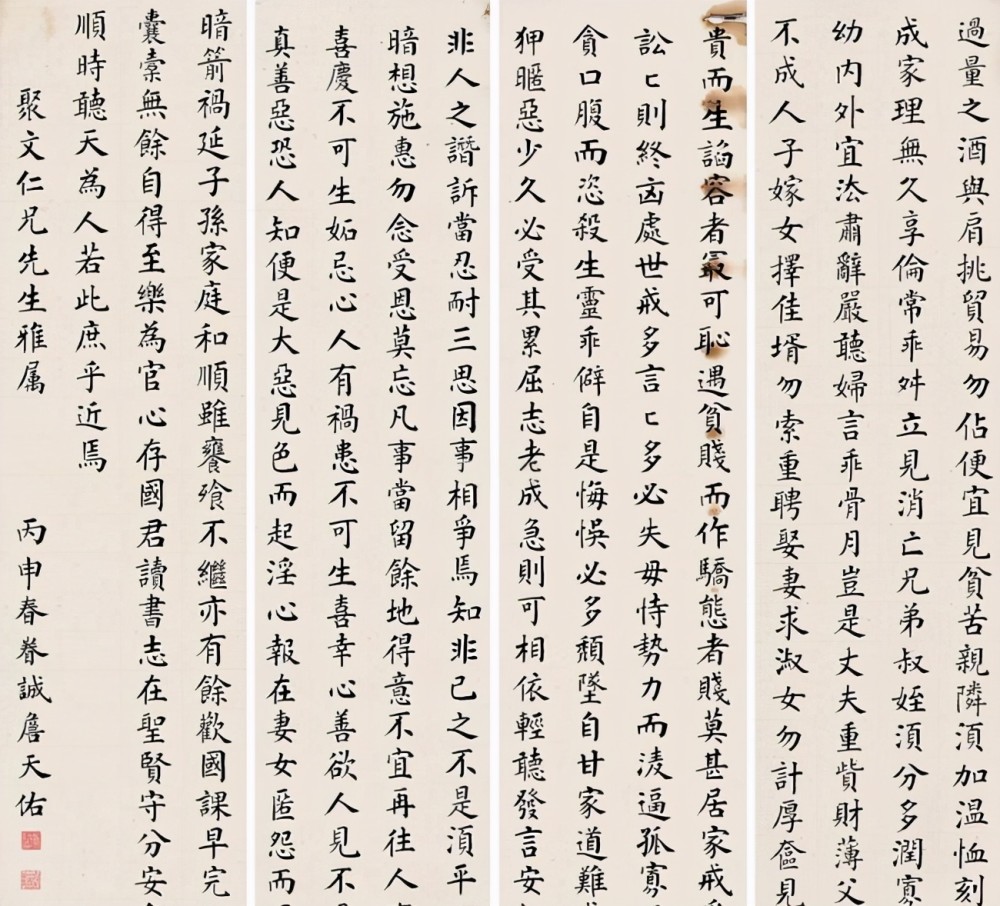 過量之酒與肩挑貿易勿佔便宜見貧苦親隣湏加温恤刻
成家理無久享倫常乖舛立見消亡兄弟叔姪湏分多潤寡
幼内外宜法肅辭嚴聽婦言乖骨月豈是丈夫重貲財薄父
不成人子嫁女擇佳壻勿索重聘娶妻求淑女勿計厚奩見
貴而生諂容者最可恥遇貧賤而作驕態者賤莫甚居家戒
訟匕則終凶處世戒多言匕多必失毋恃勢力而淩逼孤寡
貪口腹而恣殺生靈乖僻自是悔悞必多頹墜自甘家道難
狎暱惡少久必受其累屈志老成急則可相依輕聽發言安
非人之譖訴當忍耐三思因事相爭焉知非己之不是湏平
暗想施惠勿念受恩莫忘凡事當留餘地得意不宜再往人
喜慶不可生妬忌心人有禍患不可生喜幸心善欲人見不
真善惡恐人知便是大惡見色而起淫心報在妻女匿怨而
暗箭禍延子孫家庭和順雖饔飱不繼亦有餘歡國課早完
囊橐無餘自得至樂為官心存國君讀書志在聖賢守分安
順時聽天為人若此庶乎近焉
聚文仁兄先生雅属 丙申春眷誠詹天佑